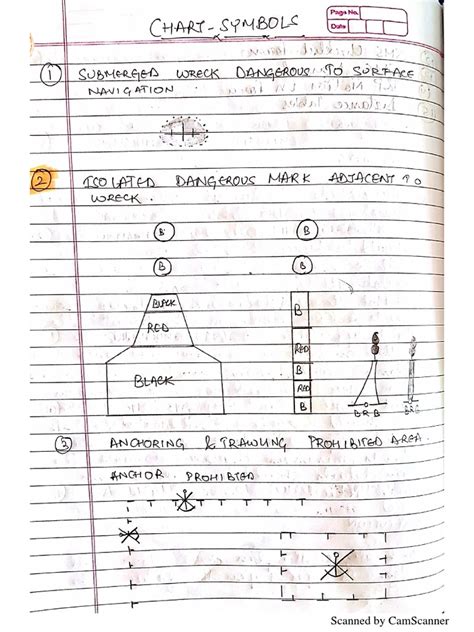 Page No.
Date
CHART-SYMBOLS
1 SUBMERGED WRECK DANGEROUS TO SURFACE
NAVIGATION
2 ISOLATED DANGEROUS MARK ADJACENT TO
WRECK.
B B
B B
BLACK
RED
BLACK
B
RED
B
RED
B
B R B
B R B
3 ANCHORING & TRAWLING PROHIBITED AREA
ANCHOR PROHIBITED
Scanned by CamScanner